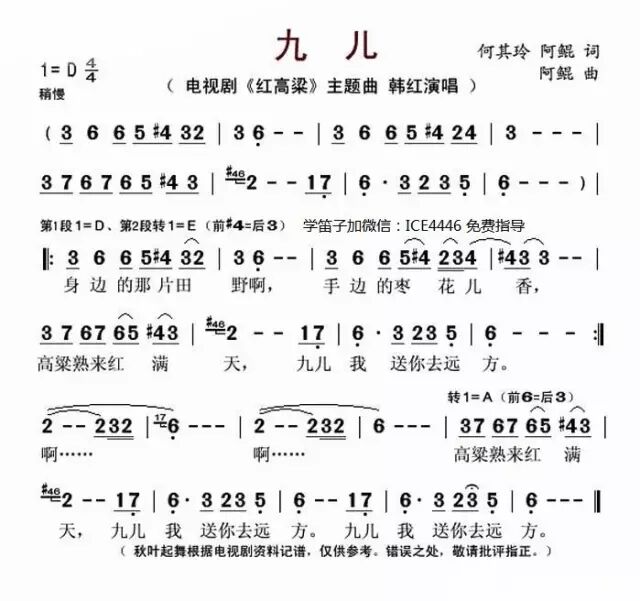 九 儿
何其玲 阿鲲 词
1=D 4/4
( 电视剧《红高粱》主题曲 韩红演唱 )
阿鲲 曲
稍慢
( 3 6 6 5 #4 3 2 | 3 6 - - | 3 6 6 5 #4 2 4 | 3 - - - |
3 7 6 7 6 5 #4 3 | #46 2 - - 1 7 | 6 · 3 2 3 5 | 6 - - - ) |
第1段1=D、第2段转1=E (前#4=后3) 学笛子加微信:ICE4446 免费指导
‖: 3 6 6 5 #4 3 2 | 3 6 - - | 3 6 6 5 #4 2 3 4 | #4 3 3 - - |
身 边 的那 片田 野啊, 手 边 的枣 花 儿 香,
3 7 6 7 6 5 #4 3 | #46 2 - - 1 7 | 6 · 3 2 3 5 | 6 - - - :‖
高粱熟来红 满 天, 九儿 我 送你去远 方。
转1=A (前6=后3)
2 - - 2 3 2 | 17 6 - - - | 2 - - 2 3 2 | 6 - - - | 3 7 6 7 6 5 #4 3 |
啊…… 啊…… 高粱熟来红 满
#46 2 - - 1 7 | 6 · 3 2 3 5 | 6 - - 1 7 | 6 · 3 2 3 5 | 6 - - - ‖
天, 九儿 我 送你去远 方。 九儿 我 送你去远 方。
( 秋叶起舞根据电视剧资料记谱,仅供参考。错误之处,敬请批评指正。)